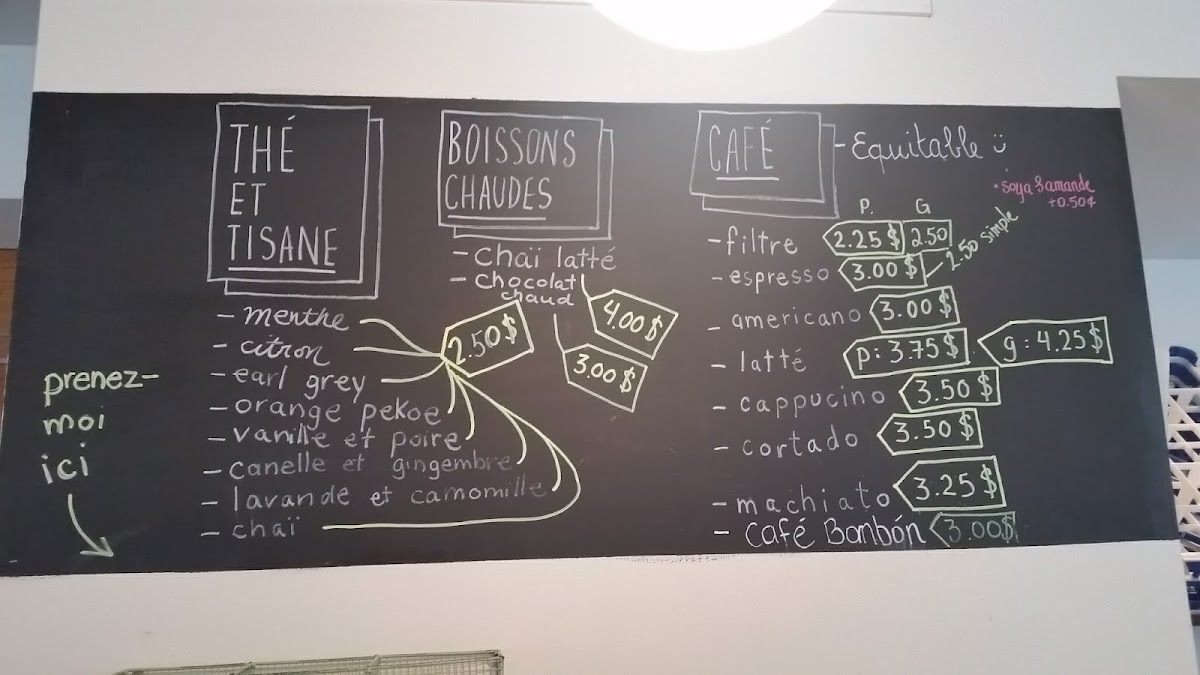 THÉ
ET
TISANE
- menthe
- citron
- earl grey
- orange pekoe
- vanille et poire
- canelle et gingembre
- lavande et camomille
- chaï
2.50$
prenez-
moi
ici
BOISSONS
CHAUDES
- chaï latté
- chocolat
chaud
4.00$
3.00$
CAFÉ
- Equitable
• soya & amande
+0.50¢
P. G
- filtre 2.25$ 2.50
- espresso 3.00$ 2.50 simple
- americano 3.00$
- latté p: 3.75$ g: 4.25$
- cappucino 3.50$
- cortado 3.50$
- machiato 3.25$
- café Bombón 3.00$